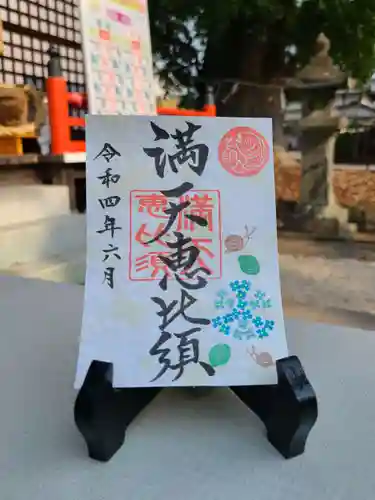 満天恵比須
令和四年六月
満天
恵比須